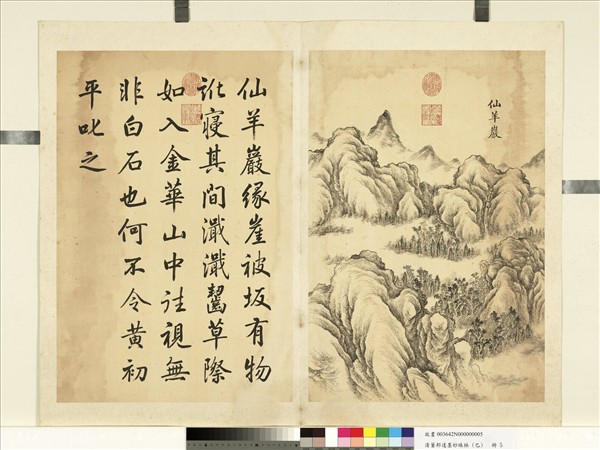 仙羊巖
仙羊巖緣崖被坂有物
訛寢其間濈濈齧草際
如入金華山中往視無
非白石也何不令黃初
平叱之
故畫 003642N000000005
清董邦達墨妙珠林（巳） 冊 5